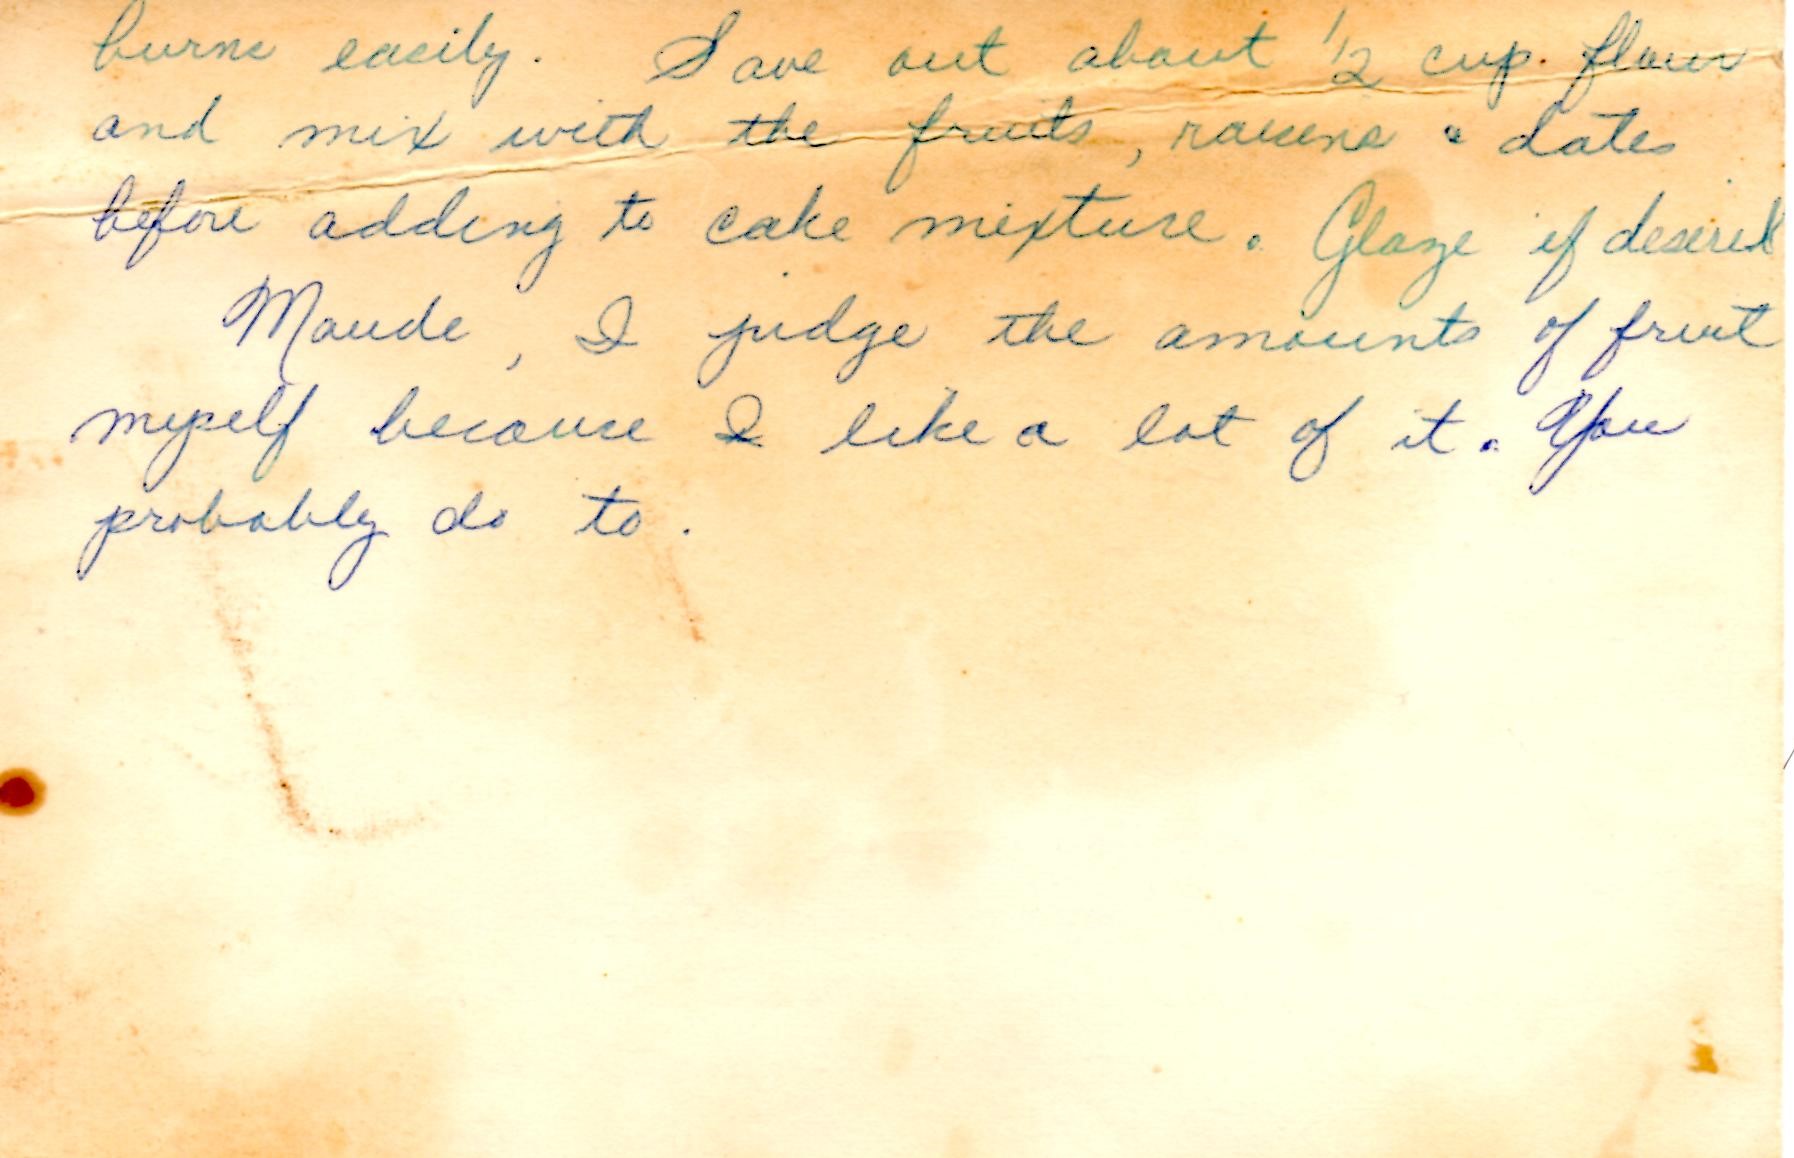 burns easily. Save out about 1/2 cup. flour
and mix with the fruits, raisins & dates
before adding to cake mixture. Glaze if desired
Maude, I judge the amounts of fruit
myself because I like a lot of it. You
probably do to.